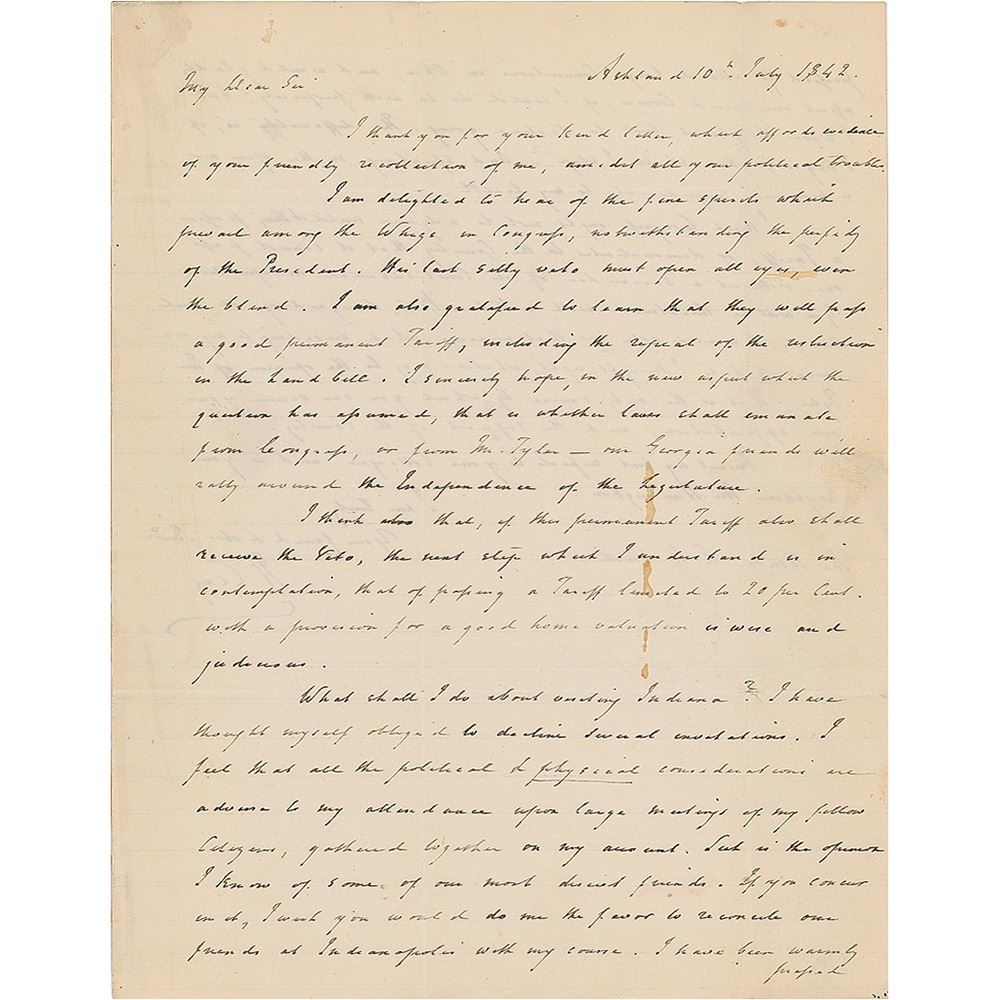 Ashland 10h. July 1842.
My Dear Sir
I thank you for your kind letter, which affords evidence
of your friendly recollection of me, amidst all your political troubles.
I am delighted to hear of the fine spirits which
prevail among the Whigs in Congress, notwithstanding the perfidy
of the President. His last silly veto must open all eyes, even
the blind. I am also gratified to learn that they will pass
a good permanent Tariff, including the repeal of the restriction
in the land bill. I sincerely hope, in the new aspect which the
question has assumed, that is whether laws shall emanate
from Congress, or from Mr. Tyler — our Georgia friends will
rally around the Independence of the Legislature.
I think also that, if this permanent Tariff also shall
receive the Veto, the next step which I understand is in
contemplation, that of passing a Tariff limited to 20 per Cent.
with a provision for a good home valuation is wise and
judicious.
What shall I do about visiting Indiana? I have
thought myself obliged to decline several invitations. I
feel that all the political & physical considerations are
adverse to my attendance upon large meetings of my fellow
Citizens, gathered together on my account. Such is the opinion
I know of some of our most discreet friends. If you concur
in it, I wish you would do me the favor to reconcile our
friends at Indianapolis with my course. I have been warmly
pressed